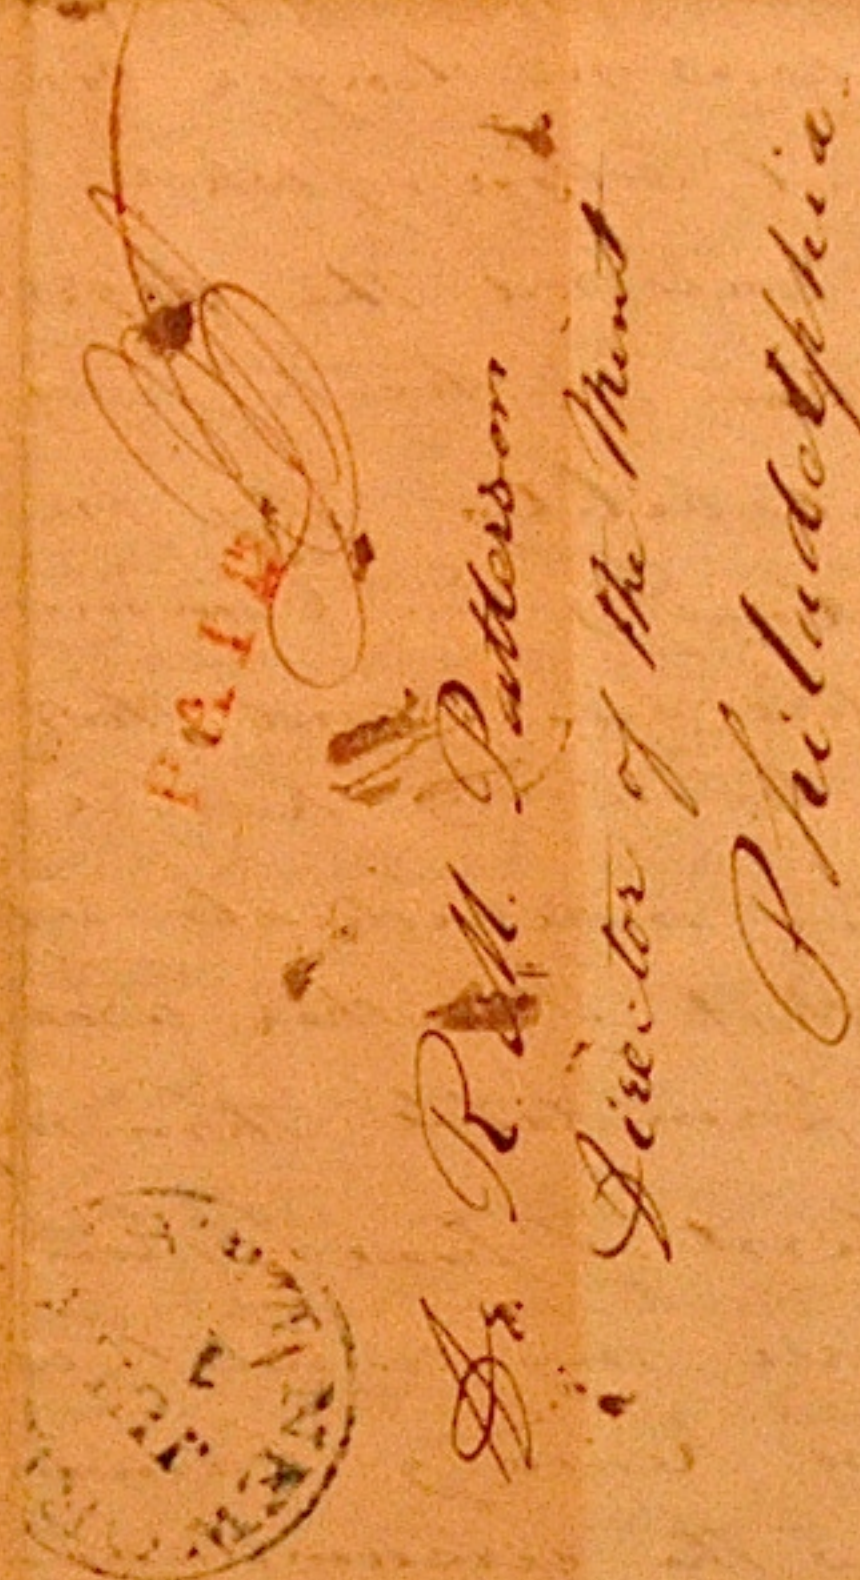 PAID
Dr R. M. Patterson
Director of the Mint
Philadelphia